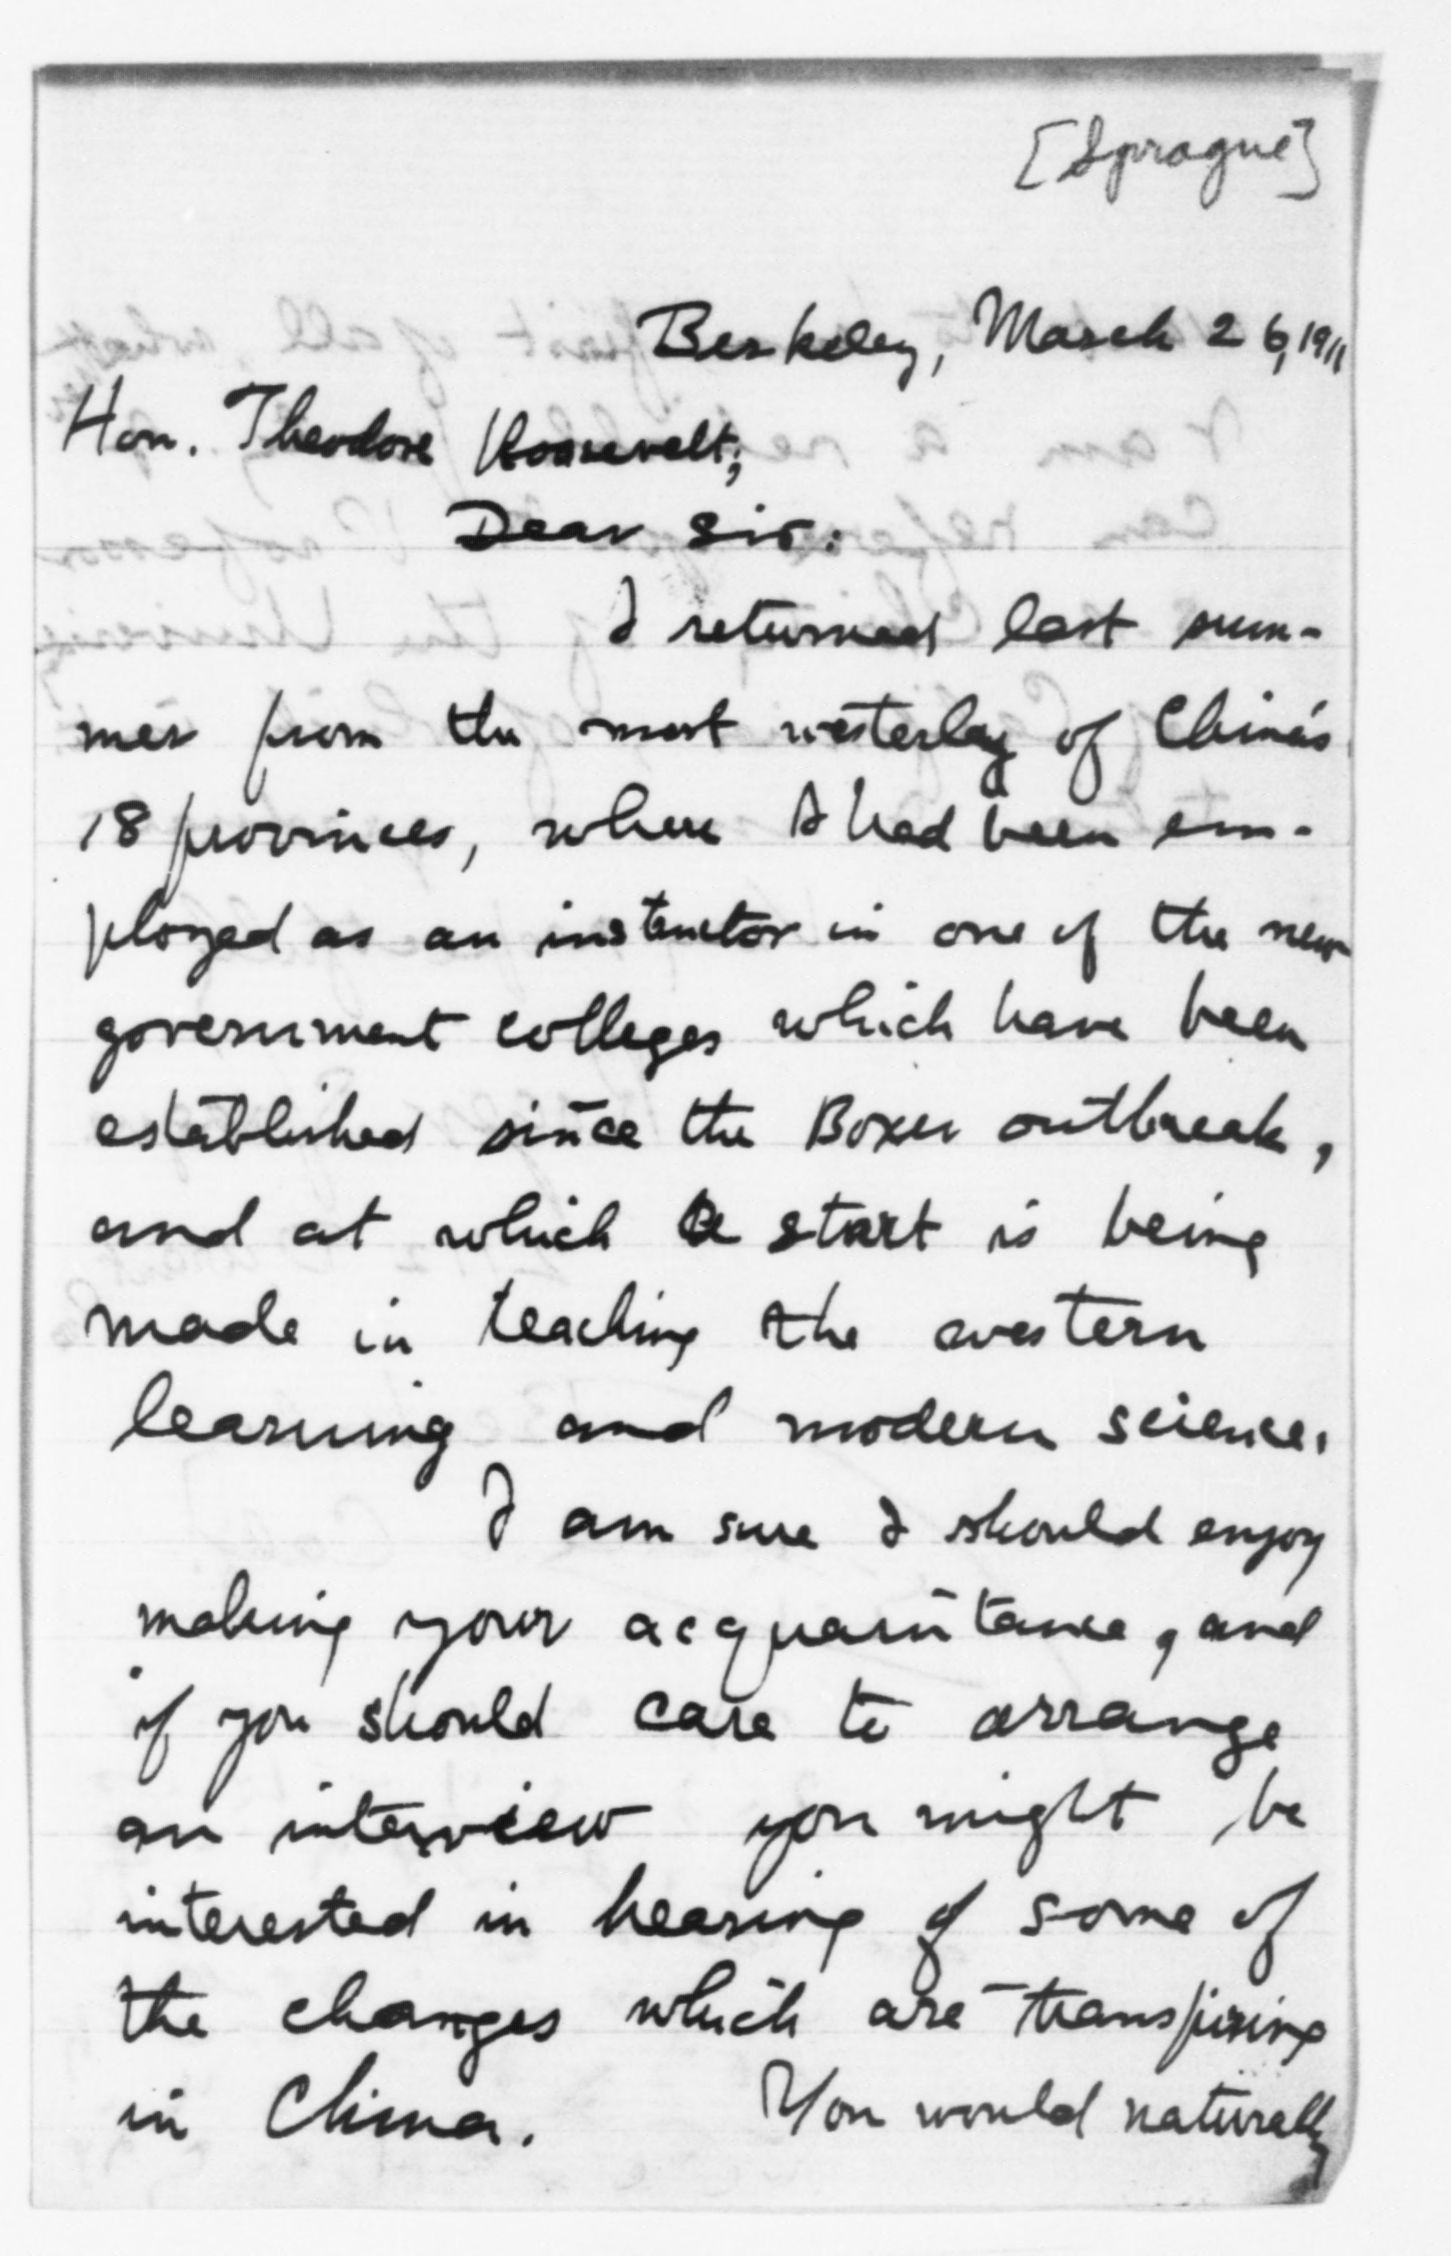 [Sprague]
Berkeley, March 26, 1911
Hon. Theodore Roosevelt;
Dear Sir:
I returned last sum-
mer from the most westerley of China's
18 provinces, where I had been em-
ployed as an instructor in one of the new
government colleges which have been
established since the Boxer outbreak,
and at which a start is being
made in teaching the western
learning and modern science.
I am sure I should enjoy
making your acquaintance, and
if you should care to arrange
an interview you might be
interested in hearing of some of
the changes which are transpiring
in China. You would naturally